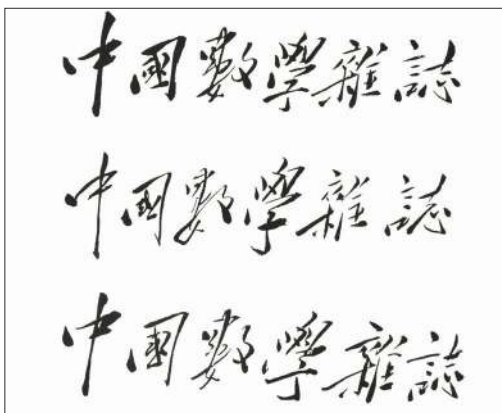 中國數學雜誌
中国數學雜誌
中国數學雜誌